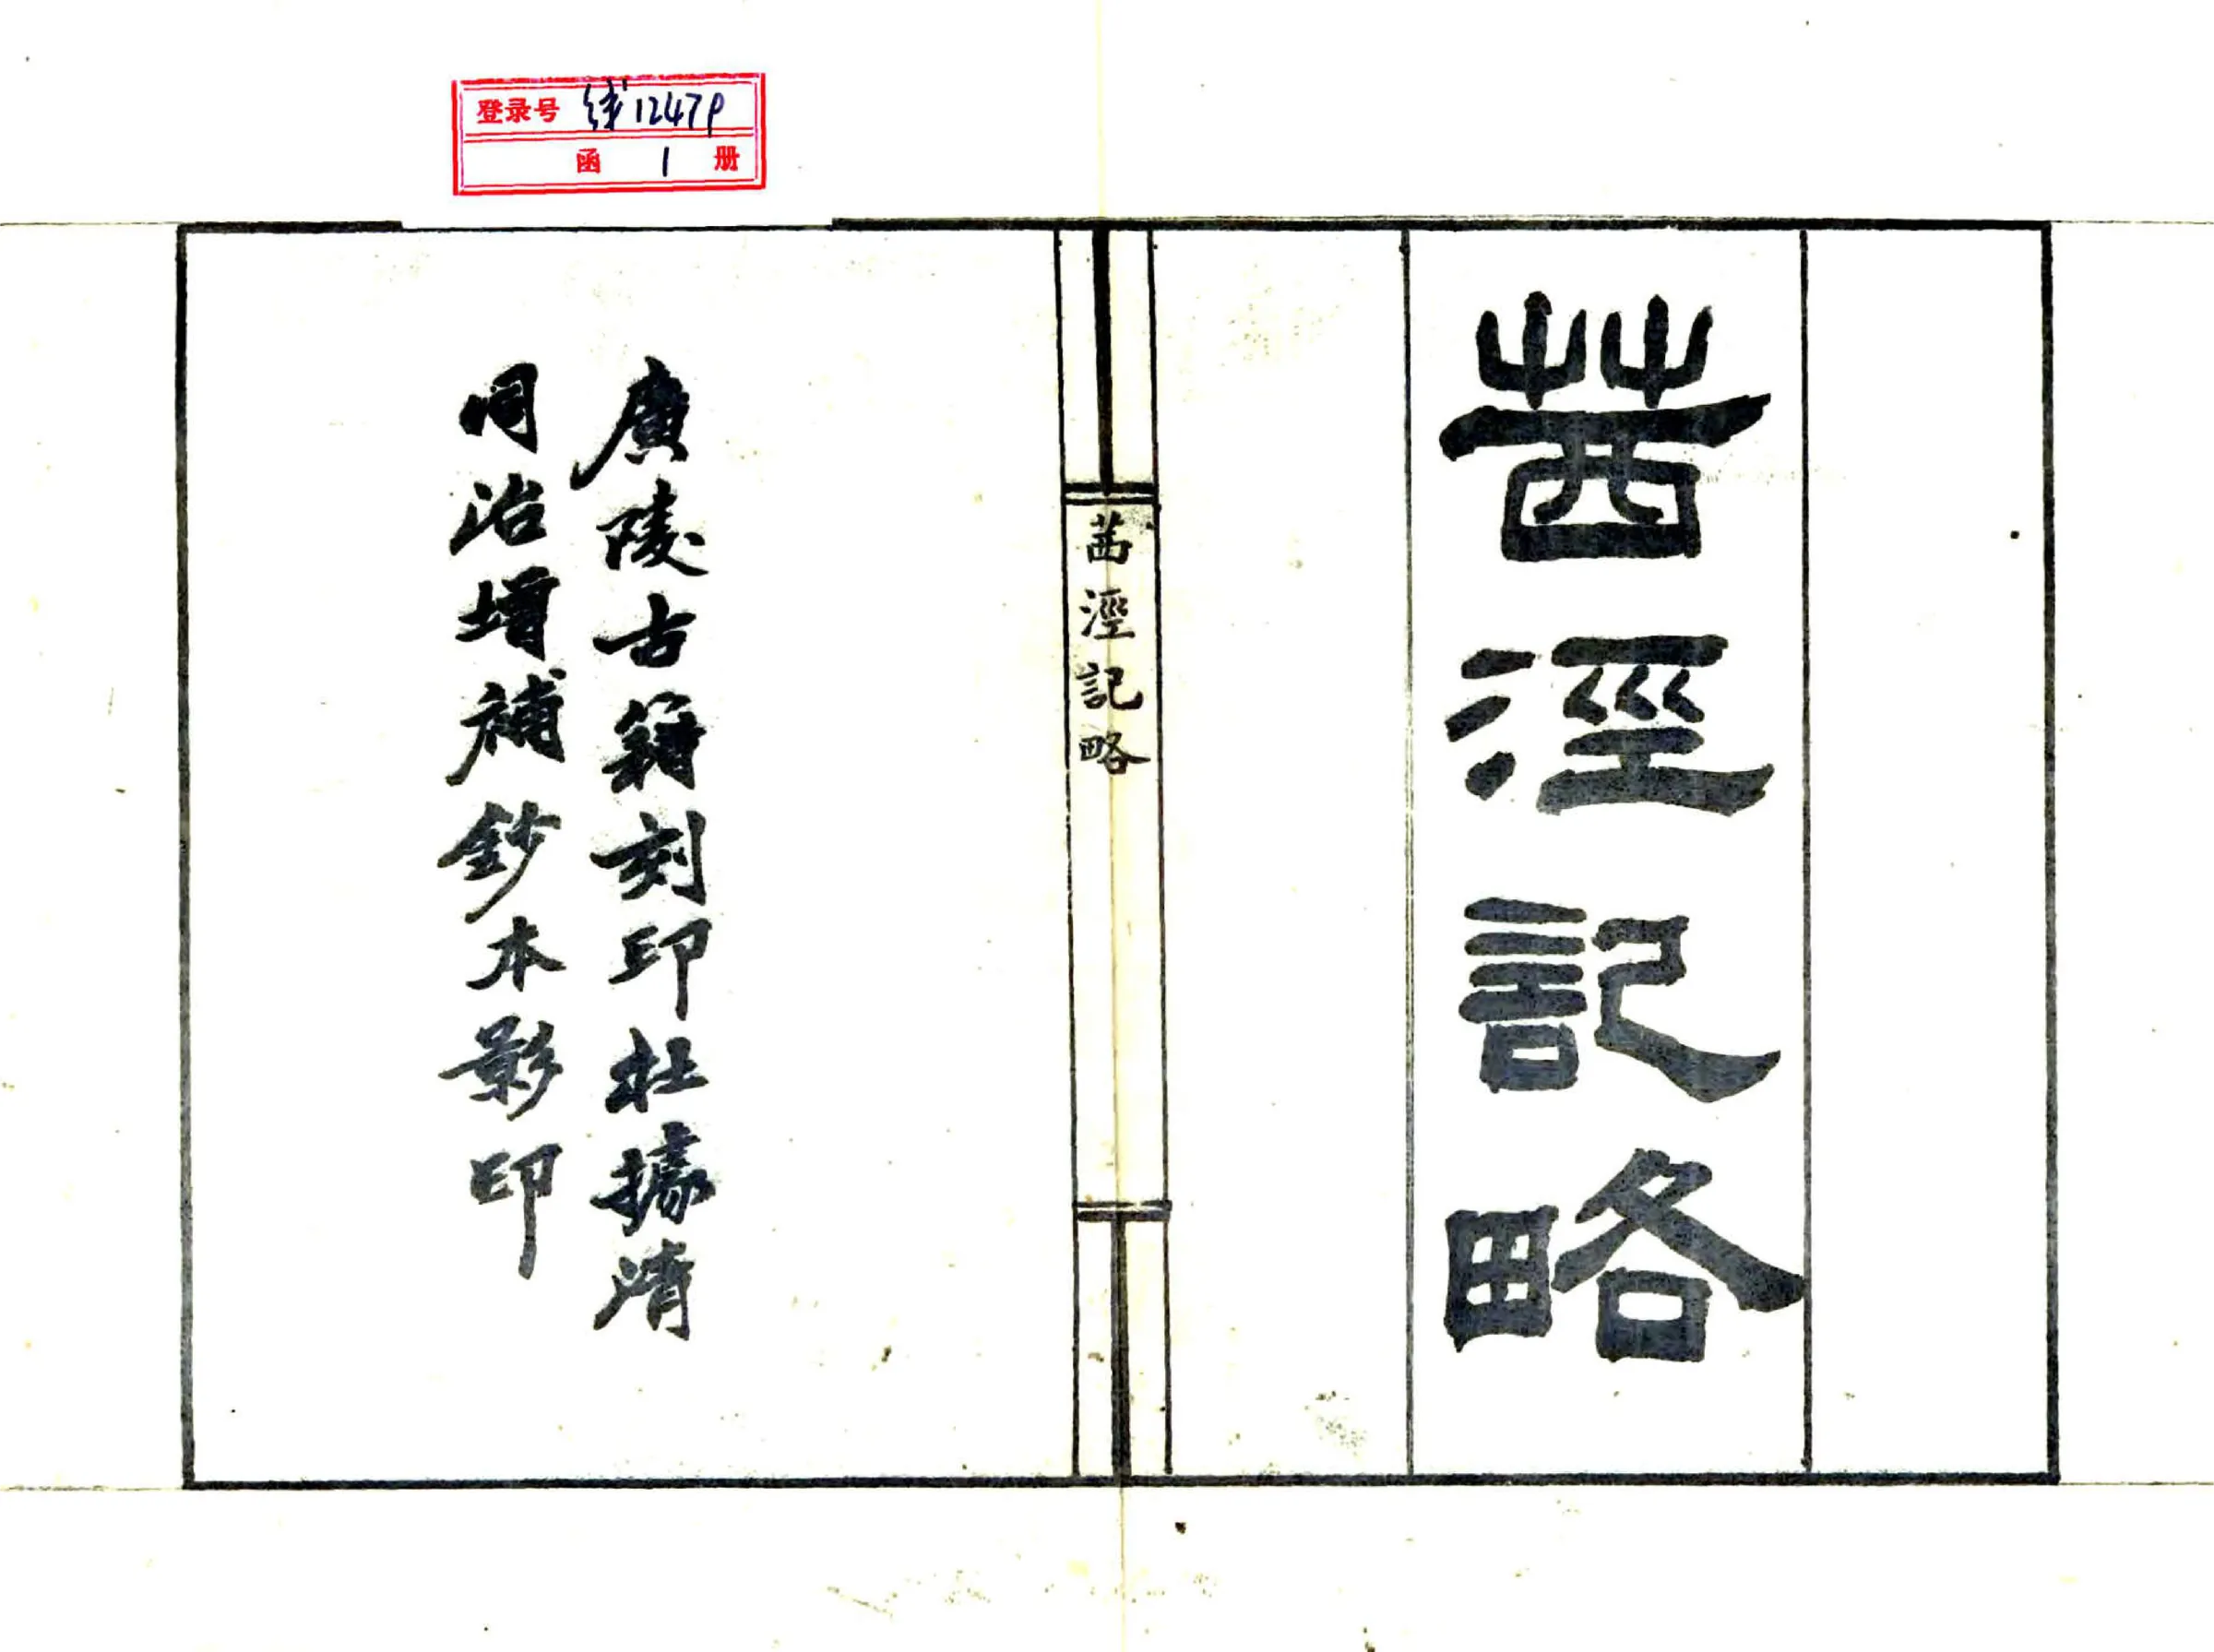 茜涇記略
茜涇記略
廣陵古籍刻印社據清
同治增補鈔本影印
登录号 线12479
函 1 册